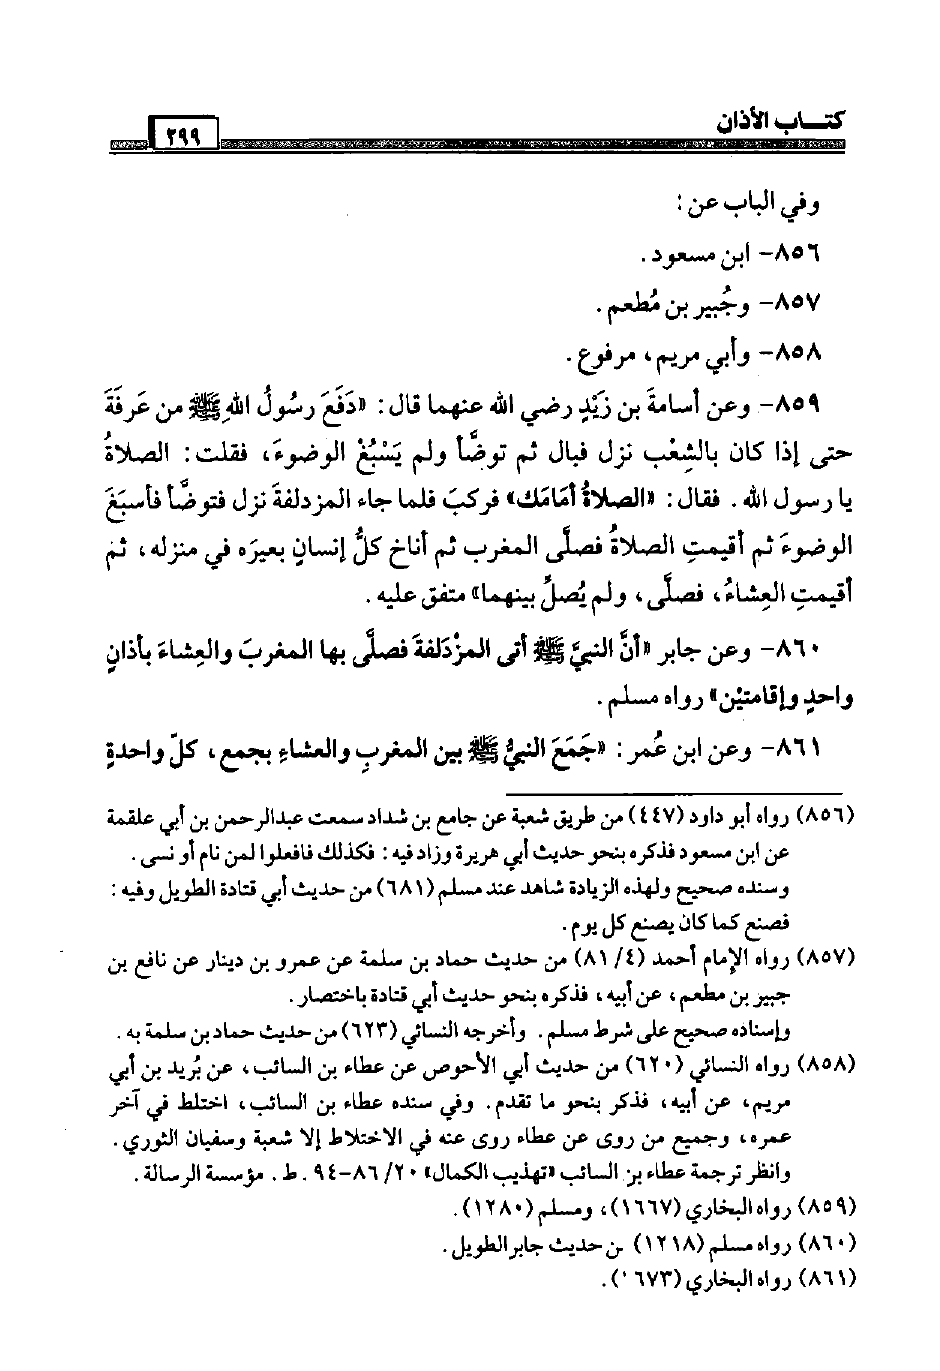 كتـــاب الأذان
٢٩٩
وفي الباب عن :
٨٥٦- ابن مسعود .
٨٥٧- وجُبير بن مُطعم .
٨٥٨- وأبي مريم، مرفوع .
٨٥٩- وعن أسامةَ بن زَيْدٍ رضي الله عنهما قال : «دَفَعَ رسُولُ اللهِ ﷺ من عَرفَةَ
حتى إذا كان بالشِعْب نزل فبال ثم توضَّأ ولم يَسْبُغْ الوضوءَ، فقلت : الصلاةُ
يا رسول الله . فقال : «الصلاةُ أمَامَك» فركبَ فلما جاء المزدلفةَ نزل فتوضَّأ فأسبَغَ
الوضوءَ ثم أقيمتِ الصلاةُ فصلَّى المغرب ثم أناخ كلُّ إنسانٍ بعيرَه في منزله، ثم
أقيمتِ العِشاءُ، فصلَّى، ولم يُصلِّ بينهما» متفق عليه .
٨٦٠- وعن جابر «أنَّ النبيَّ ﷺ أتى المزْدَلفةَ فصلَّى بها المغربَ والعِشاءَ بأذانٍ
واحدٍ وإقامتيْن» رواه مسلم .
٨٦١- وعن ابن عُمر : «جَمَعَ النبيُّ ﷺ بين المغربِ والعشاءِ بجمع، كلّ واحدةٍ
(٨٥٦) رواه أبو داود (٤٤٧) من طريق شعبة عن جامع بن شداد سمعت عبدالرحمن بن أبي علقمة
عن ابن مسعود فذكره بنحو حديث أبي هريرة وزاد فيه : فكذلك فافعلوا لمن نام أو نسى .
وسنده صحيح ولهذه الزيادة شاهد عند مسلم (٦٨١) من حديث أبي قتادة الطويل وفيه :
فصنع كما كان يصنع كل يوم .
(٨٥٧) رواه الإمام أحمد (٨١/٤) من حديث حماد بن سلمة عن عمرو بن دينار عن نافع بن
جبير بن مطعم، عن أبيه، فذكره بنحو حديث أبي قتادة باختصار .
وإسناده صحيح على شرط مسلم . وأخرجه النسائي (٦٢٣) من حديث حماد بن سلمة به .
(٨٥٨) رواه النسائي (٦٢٠) من حديث أبي الأحوص عن عطاء بن السائب، عن بُريد بن أبي
مريم، عن أبيه، فذكر بنحو ما تقدم . وفي سنده عطاء بن السائب، اختلط في آخر
عمره، وجميع من روى عن عطاء روى عنه في الاختلاط إلا شعبة وسفيان الثوري .
وانظر ترجمة عطاء بن السائب «تهذيب الكمال» ٢٠/ ٨٦-٩٤ . ط . مؤسسة الرسالة .
(٨٥٩) رواه البخاري (١٦٦٧)، ومسلم (١٢٨٠) .
(٨٦٠) رواه مسلم (١٢١٨) من حديث جابر الطويل .
(٨٦١) رواه البخاري (١٦٧٣) .